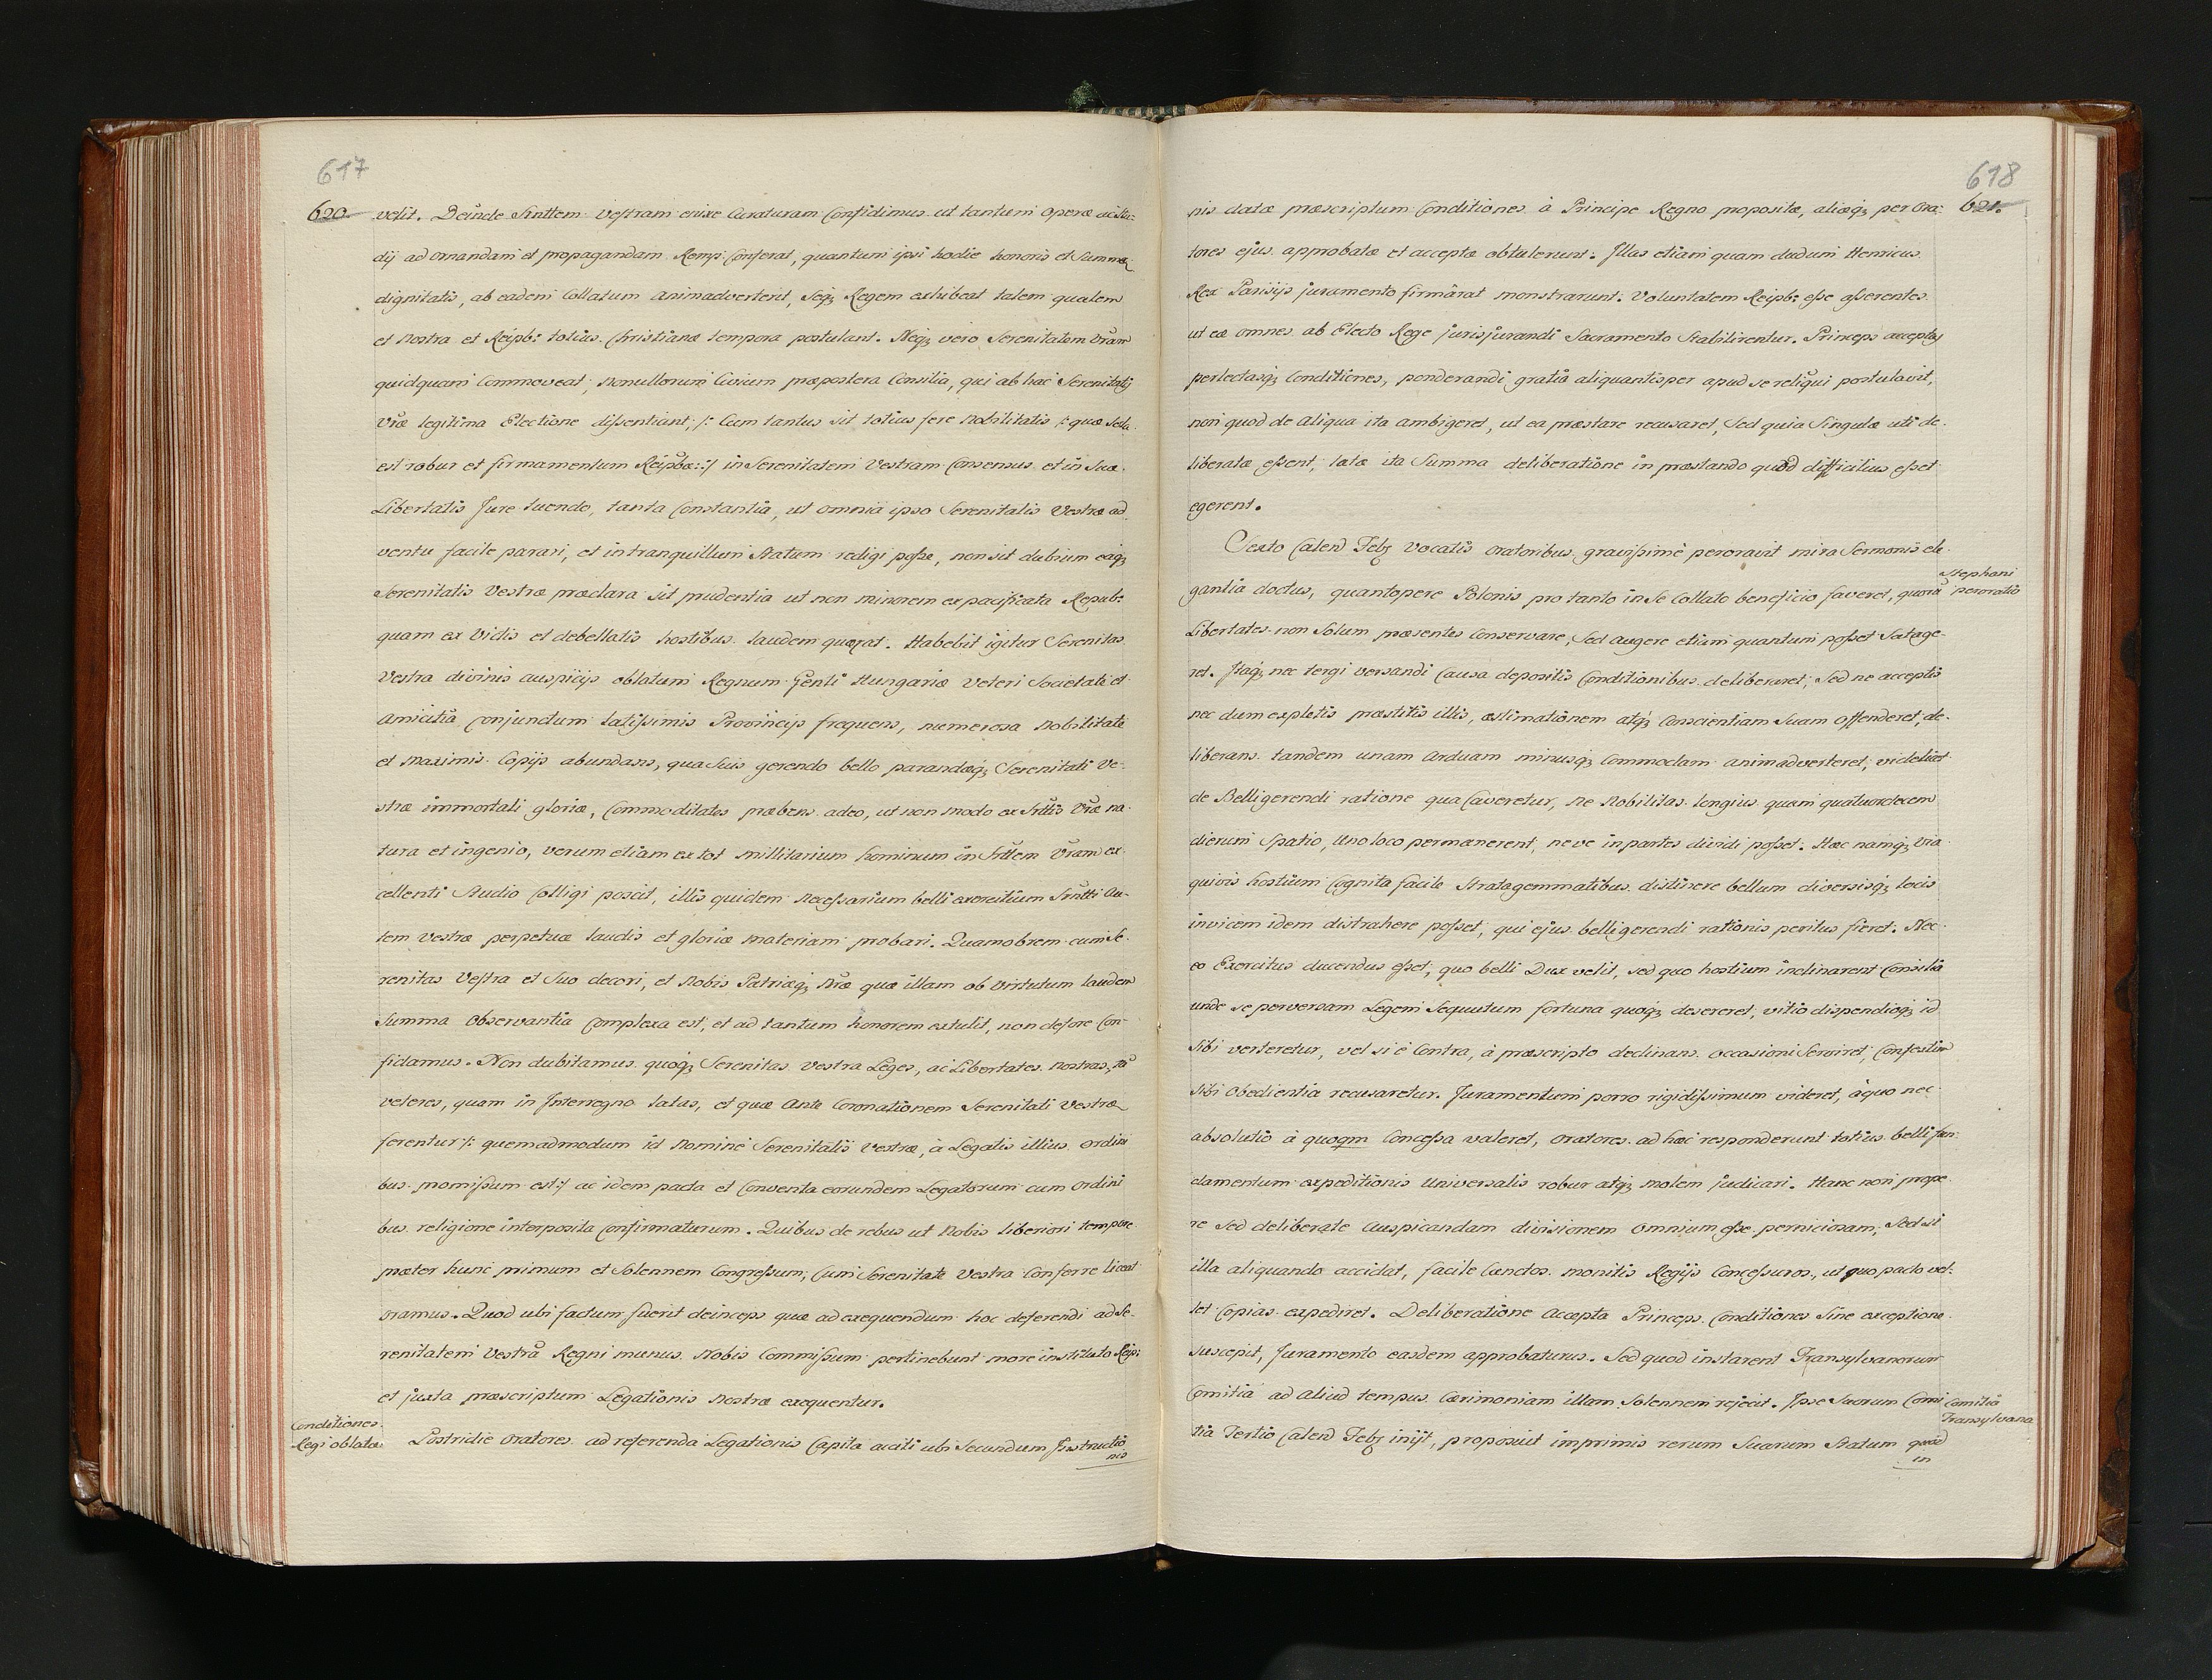 617
620. velit. Deinde Snttem Vestram enixe Curaturam Confidimus ut tantum Operæ ac Stu-
dij ad Ornandam et propagandam Remp: Conferat, quantum ipsi hodie honoris et Summæ
dignitatis, ab eadem Collatum Animadverterit, Seq; Regem exhibeat talem qualem
et Nostra et Reipb: totius Christianæ tempora postulant. Neq; vero Serenitatem Vram
quidquam Commoveat, Nonullorum Civium præpostera Consilia, qui ab hac Serenitatis
Vræ legitima Electione dissentiunt, /: Cum tantus sit totius fere Nobilitatis /: quæ Sola
est robur et firmamentum Reipbæ :/ in Serenitatem Vestram Consensus et in Suæ
Libertatis Jure tuendo, tanta Constantia, ut omnia ipso Serenitatis Vestræ ad-
ventu facile parari, et in tranquillum Statum redigi posse, non sit dubium eaq;
Serenitatis Vestræ præclara sit prudentia ut non minorem ex pacificata Repub:
quam ex Victis et debellatis hostibus laudem quærat. Habebit igitur Serenitas
Vestra divinis auspicijs oblatum Regnum Genti Hungariæ Veteri Societate et
Amicitia Conjunctum latissimis Provincijs frequens, numerosa Nobilitate
et Maximis Copijs abundans, qua Suis gerendo bello parandæq; Serenitati Ve-
stræ immortali gloriæ, Commoditates præbens adeo, ut non modo ex Snttis Vræ na-
tura et ingenio, verum etiam ex tot Millitarium hominum in Snttem Vram ex-
cellenti Studio Colligi poscit, illis quidem Necessarium belli exercitium Sntti Au-
tem Vestræ perpetuæ laudis et gloriæ Materiam probari. Quamobrem cum Se-
renitas Vestra et Suo decori, et Nobis Patriæq; Nræ quæ illam ob Virtutum laudem
Summa Observantia Complexa est, et ad tantum honorem extulit, non defore Con-
fidamus. Non dubitamus quoq; Serenitas Vestra Leges, ac Libertates Nostras,
veteres, quam in Interregno latas, et quæ Ante Coronationem Serenitati Vestræ
ferentur /: quemadmodum id Nomine Serenitatis Vestræ, à Legatis illius Ordini
bus promissum est :/ ac idem pacta et Conventa eorundem Legatorum cum Ordini
bus religione interposita Confirmaturum. Quibus de rebus ut Nobis liberiori tempore
præter hunc primum et Solennem Congressum, Cum Serenitate Vestra Conferre liceat
oramus. Quod ubi factum fuerit deinceps quæ ad exequendum hoc deferendi ad Se-
renitatem Vestrã Regni munus Nobis Commissum pertinebunt more instituto Reip:
et juxta præscriptum Legationis Nostræ exequentur.
Conditiones
Regi oblatæ.
Postridie Oratores ad referenda Legationis Capita acciti ubi Secundum Instructio
nis
618
621.
nis datæ præscriptum Conditiones à Principe Regno propositæ, aliæq; per Ora-
tores ejus approbatæ et acceptæ obtulerunt: Illas etiam quam dudum Henricus
Rex Parisijs juramento firmârat monstrarunt. Voluntatem Reipb: esse asserentes
ut eæ omnes ab Electo Rege jurisjurandi Sacramento Stabilirentur. Princeps acceptas
perlectasq; Conditiones, ponderandi gratiâ aliquantisper apud se reliqui postulavit,
non quod de Aliqua ita Ambigeret, ut ea præstare recusaret, Sed quia Singulæ uti de-
liberatæ essent, latæ ita Summa deliberatione in præstando quòd difficilius esset
egerent.
Sexto Calend Feb; Vocatis Oratoribus gravissimè peroravit mira Sermonis ele-
gantia doctus, quantopere Polonis pro tanto in Se Collato beneficio faveret, quorũ
Stephani
peroratio
Libertates non Solum præsentes Conservare, Sed Augere etiam quantum posset Satage-
ret. Itaq; nec tergi versandi Causa depositis Conditionibus deliberaret, Sed ne acceptis
nec dum expletis præstitis illis, æstimationem atq; Conscientiam Suam Offenderet, de-
liberans tandem unam Arduam minusq; Commodam animadverteret, videlicet
de Belligerendi ratione qua Caveretur, Ne Nobilitas longius quam quatuordecem
dierum Spatio, Uno loco permanerent, neve in partes dividi posset: Hac namq; Via
quivis hostium Cognita facile Stratagemmatibus distinere bellum diversisq; locis
invicem idem distrahere posset, qui ejus belligerendi rationis peritus fieret: Nec
eo Exercitus ducendus esset, quo belli Dux velit, sed quo hostium inclinarent Consilia
unde se perversam Legem Sequutum fortuna quoq; desereret, vitio dispendioq; id
Sibi verteretur, vel si è Contra, à præscripto declinans occasioni Serviret, Confestim
Sibi Obedientia recusaretur. Juramentum porro rigidissimum videret, à quo nec
absolutio à quoqm Concessa valeret, Oratores ad hæc responderunt totius belli fun-
damentum expeditionis Universalis robur atq; Molem judicari. Hanc non prope-
re Sed deliberate Auspicandam divisionem Omnium esse perniciosam, Sed si
illa aliquando accidat, facile Cunctos monitis Regijs Concessuros, ut quo pacto vel-
let Copias expediret. Deliberatione Accepta Princeps Conditiones Sine exceptione
Suscepit, Juramento easdem approbaturus. Sed quod instarent Transylvanorum
Comitia ad Aliud tempus Cærimoniam illam Solennem rejecit. Ipse Suorum Comi
Comitia
Transylvana
tia Tertio Calend Feb; inijt, proposuit imprimis rerum Suarum Statum quòd
in